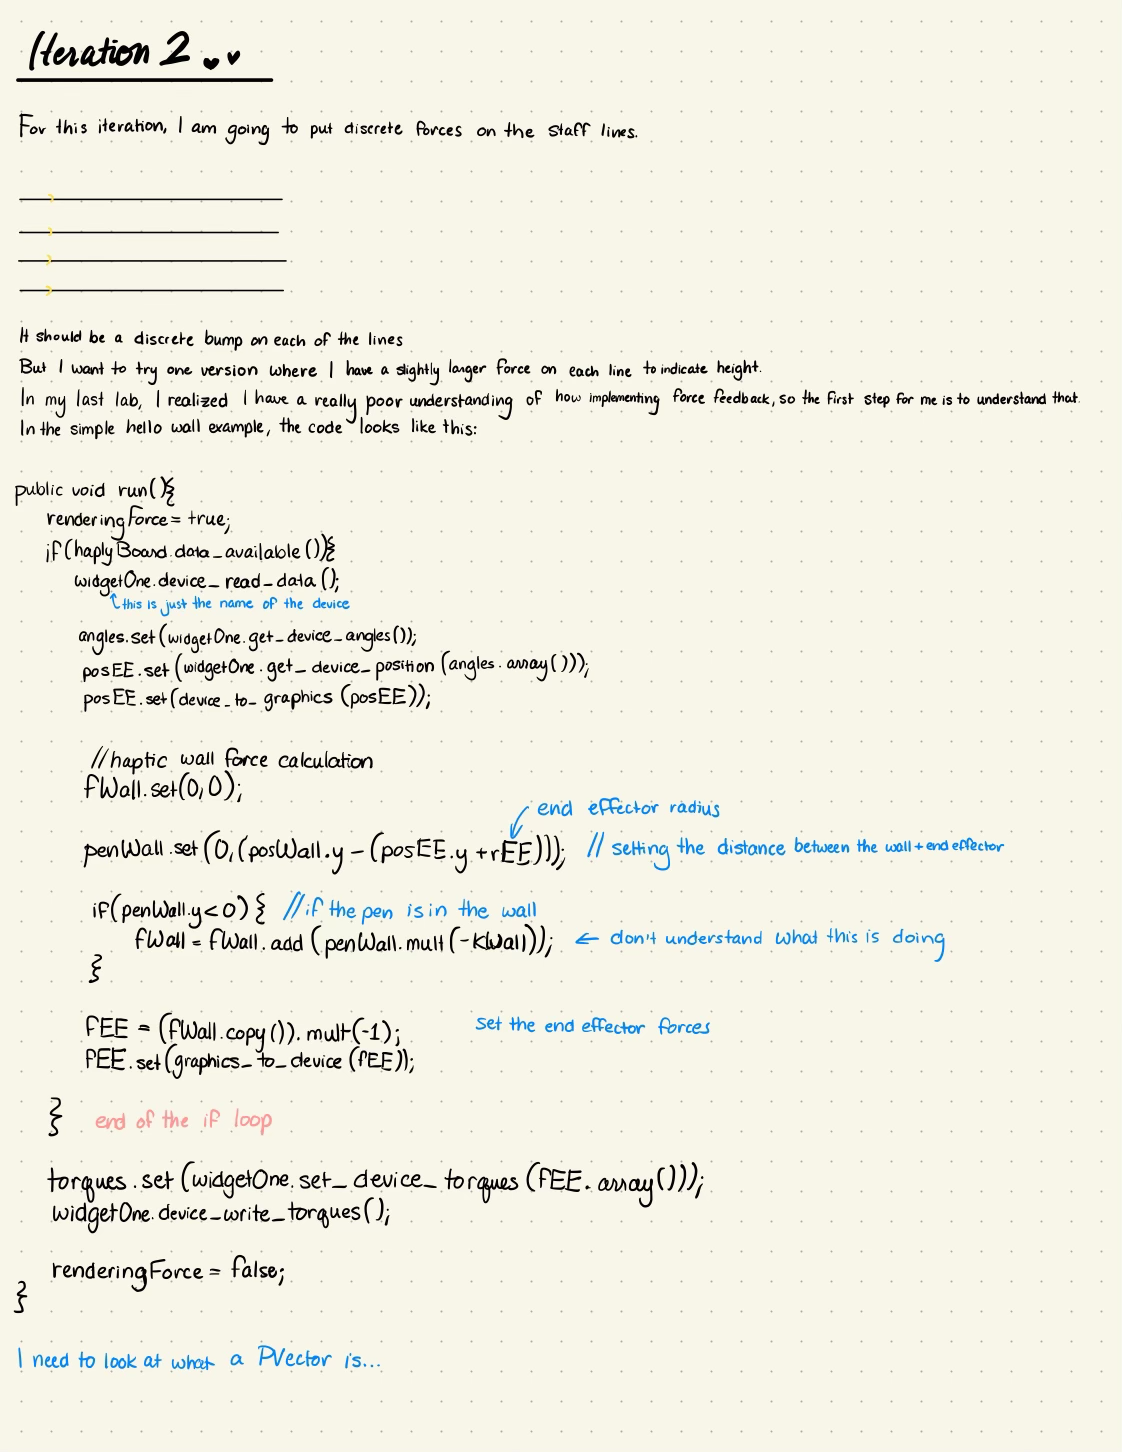 Iteration 2
For this iteration, I am going to put discrete forces on the staff lines.
It should be a discrete bump on each of the lines
But I want to try one version where I have a slightly larger force on each line to indicate height.
In my last lab, I realized I have a really poor understanding of how implementing force feedback, so the first step for me is to understand that.
In the simple hello wall example, the code looks like this:
public void run(){
renderingForce = true;
if(haplyBoard.data_available()){
widgetOne.device_read_data();
this is just the name of the device
angles.set(widgetOne.get_device_angles());
posEE.set(widgetOne.get_device_position(angles.array()));
posEE.set(device_to_graphics(posEE));
//haptic wall force calculation
fWall.set(0,0);
end effector radius
penWall.set(0,(posWall.y - (posEE.y + rEE))); // setting the distance between the wall + end effector
if(penWall.y<0){ //if the pen is in the wall
fWall = fWall.add(penWall.mult(-kWall)); ← don't understand what this is doing
}
fEE = (fWall.copy()).mult(-1); set the end effector forces
fEE.set(graphics_to_device(fEE));
} end of the if loop
torques.set(widgetOne.set_device_torques(fEE.array()));
widgetOne.device_write_torques();
renderingForce = false;
}
I need to look at what a PVector is...